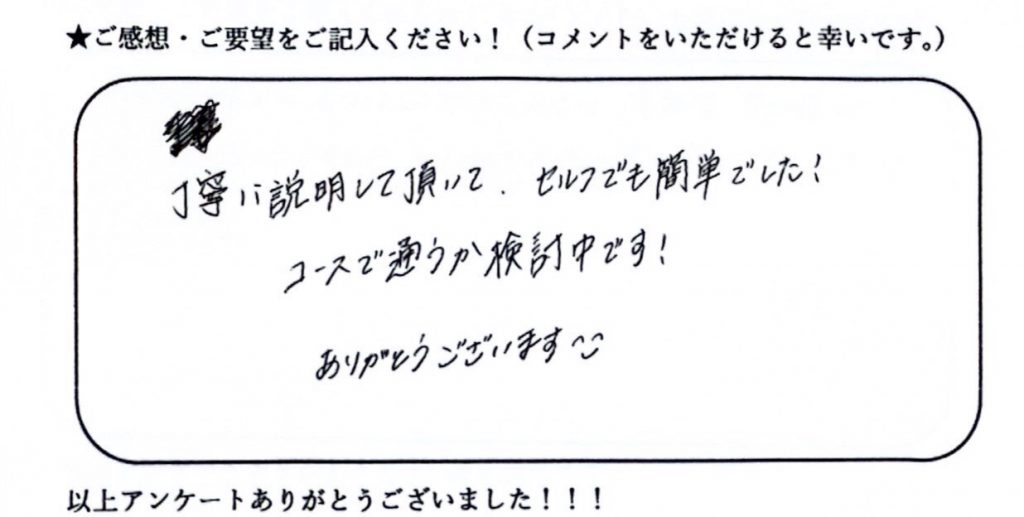 ★ご感想・ご要望をご記入ください！（コメントをいただけると幸いです。）
丁寧に説明して頂いて、セルフでも簡単でした！
コースで通うか検討中です！
ありがとうございます
以上アンケートありがとうございました！！！